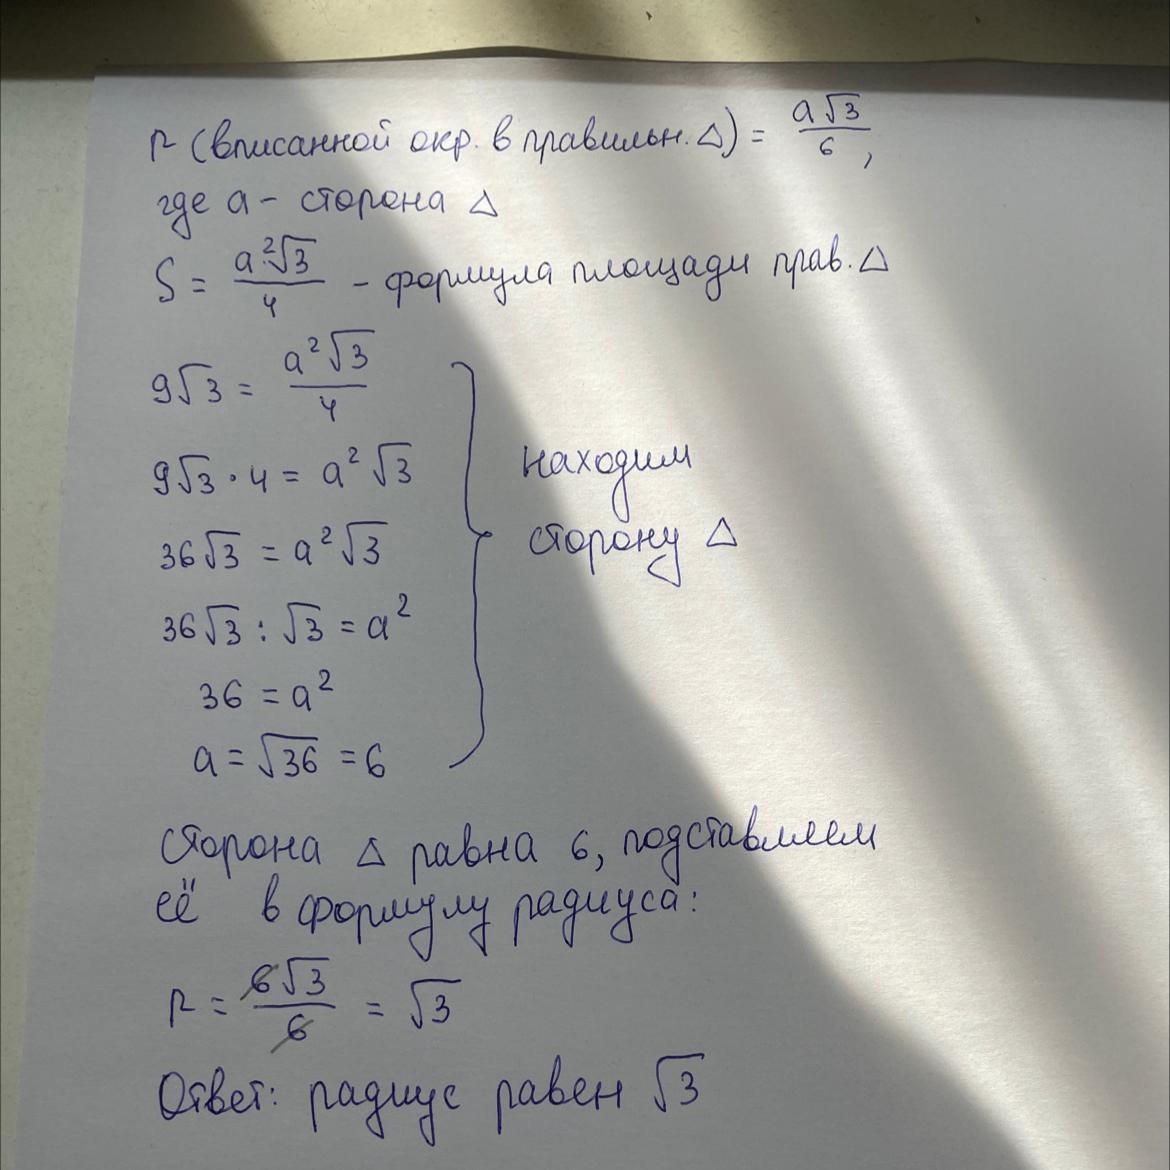 r (вписанной окр. в правильн. △) = a√3/6,
где a - сторона △
S = a²√3/4 - формула площади прав. △
9√3 = a²√3/4
9√3 · 4 = a²√3
36√3 = a²√3
36√3 : √3 = a²
36 = a²
a = √36 = 6
находим
сторону △
сторона △ равна 6, подставляем
её в формулу радиуса:
r = 6√3/6 = √3
Ответ: радиус равен √3